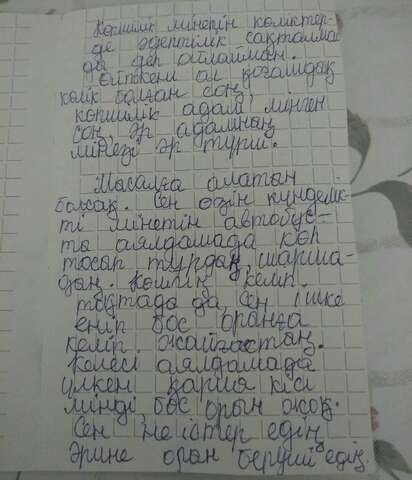 Көпшілік мінетін көліктер-
де әдептілік сақталма
да деп ойлаймын.
Өйткені ол қоғамдық
көлік болған соң,
көпшілік адам мінген
соң, әр адамның
мінезі әр түрлі.
Мысалға алатын
болсақ. Сен өзің күнделік-
ті мінетін автобус-
та аялдамада көп
тосып тұрдың, шарша-
дың. Көлігің келіп
тоқтады да, сен ішке
еніп бос орынға
келіп жайғастың.
Келесі аялдамада
үлкен қария кісі
мінді, бос орын жоқ.
Сен не істер едің
Әрине орын беруші едің.